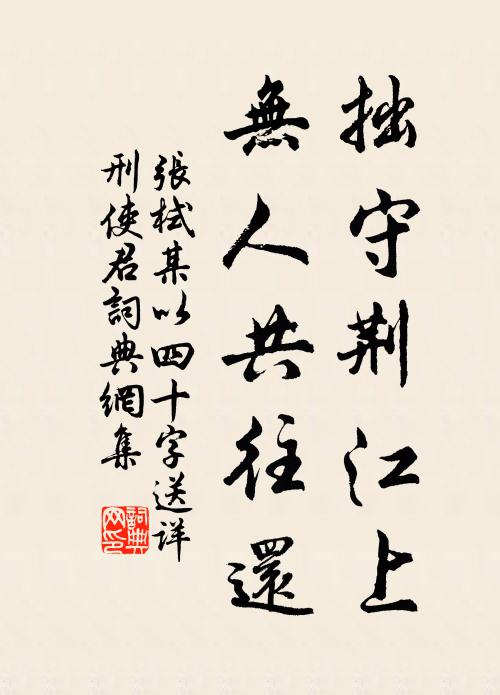 拙守荆江上
無人共往還
張栻某以四十字送詳
刑使君詞典網集
詞典
网印